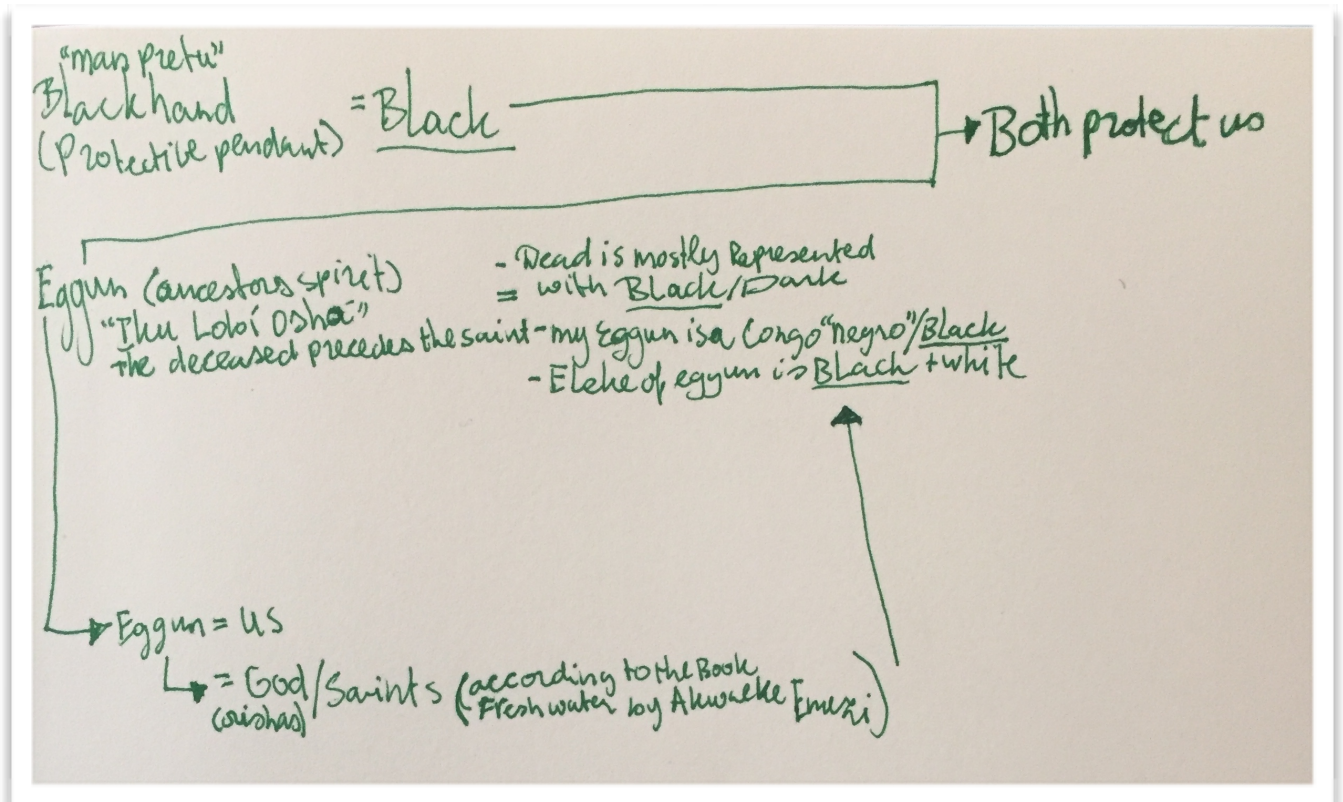 "man pretu"
Black hand
(Protective pendant)
= Black
Both protect us
Eggun (ancestors spirit)
"Iku Lobi Osha"
The deceased precedes the saint
- Dead is mostly Represented
= with Black/Dark
- my Eggun is a Congo "negro"/Black
- Eleke of eggun is Black + white
Eggun = US
= God/Saints (according to the Book
(orishas)
Freshwater by Akwaeke Emezi)